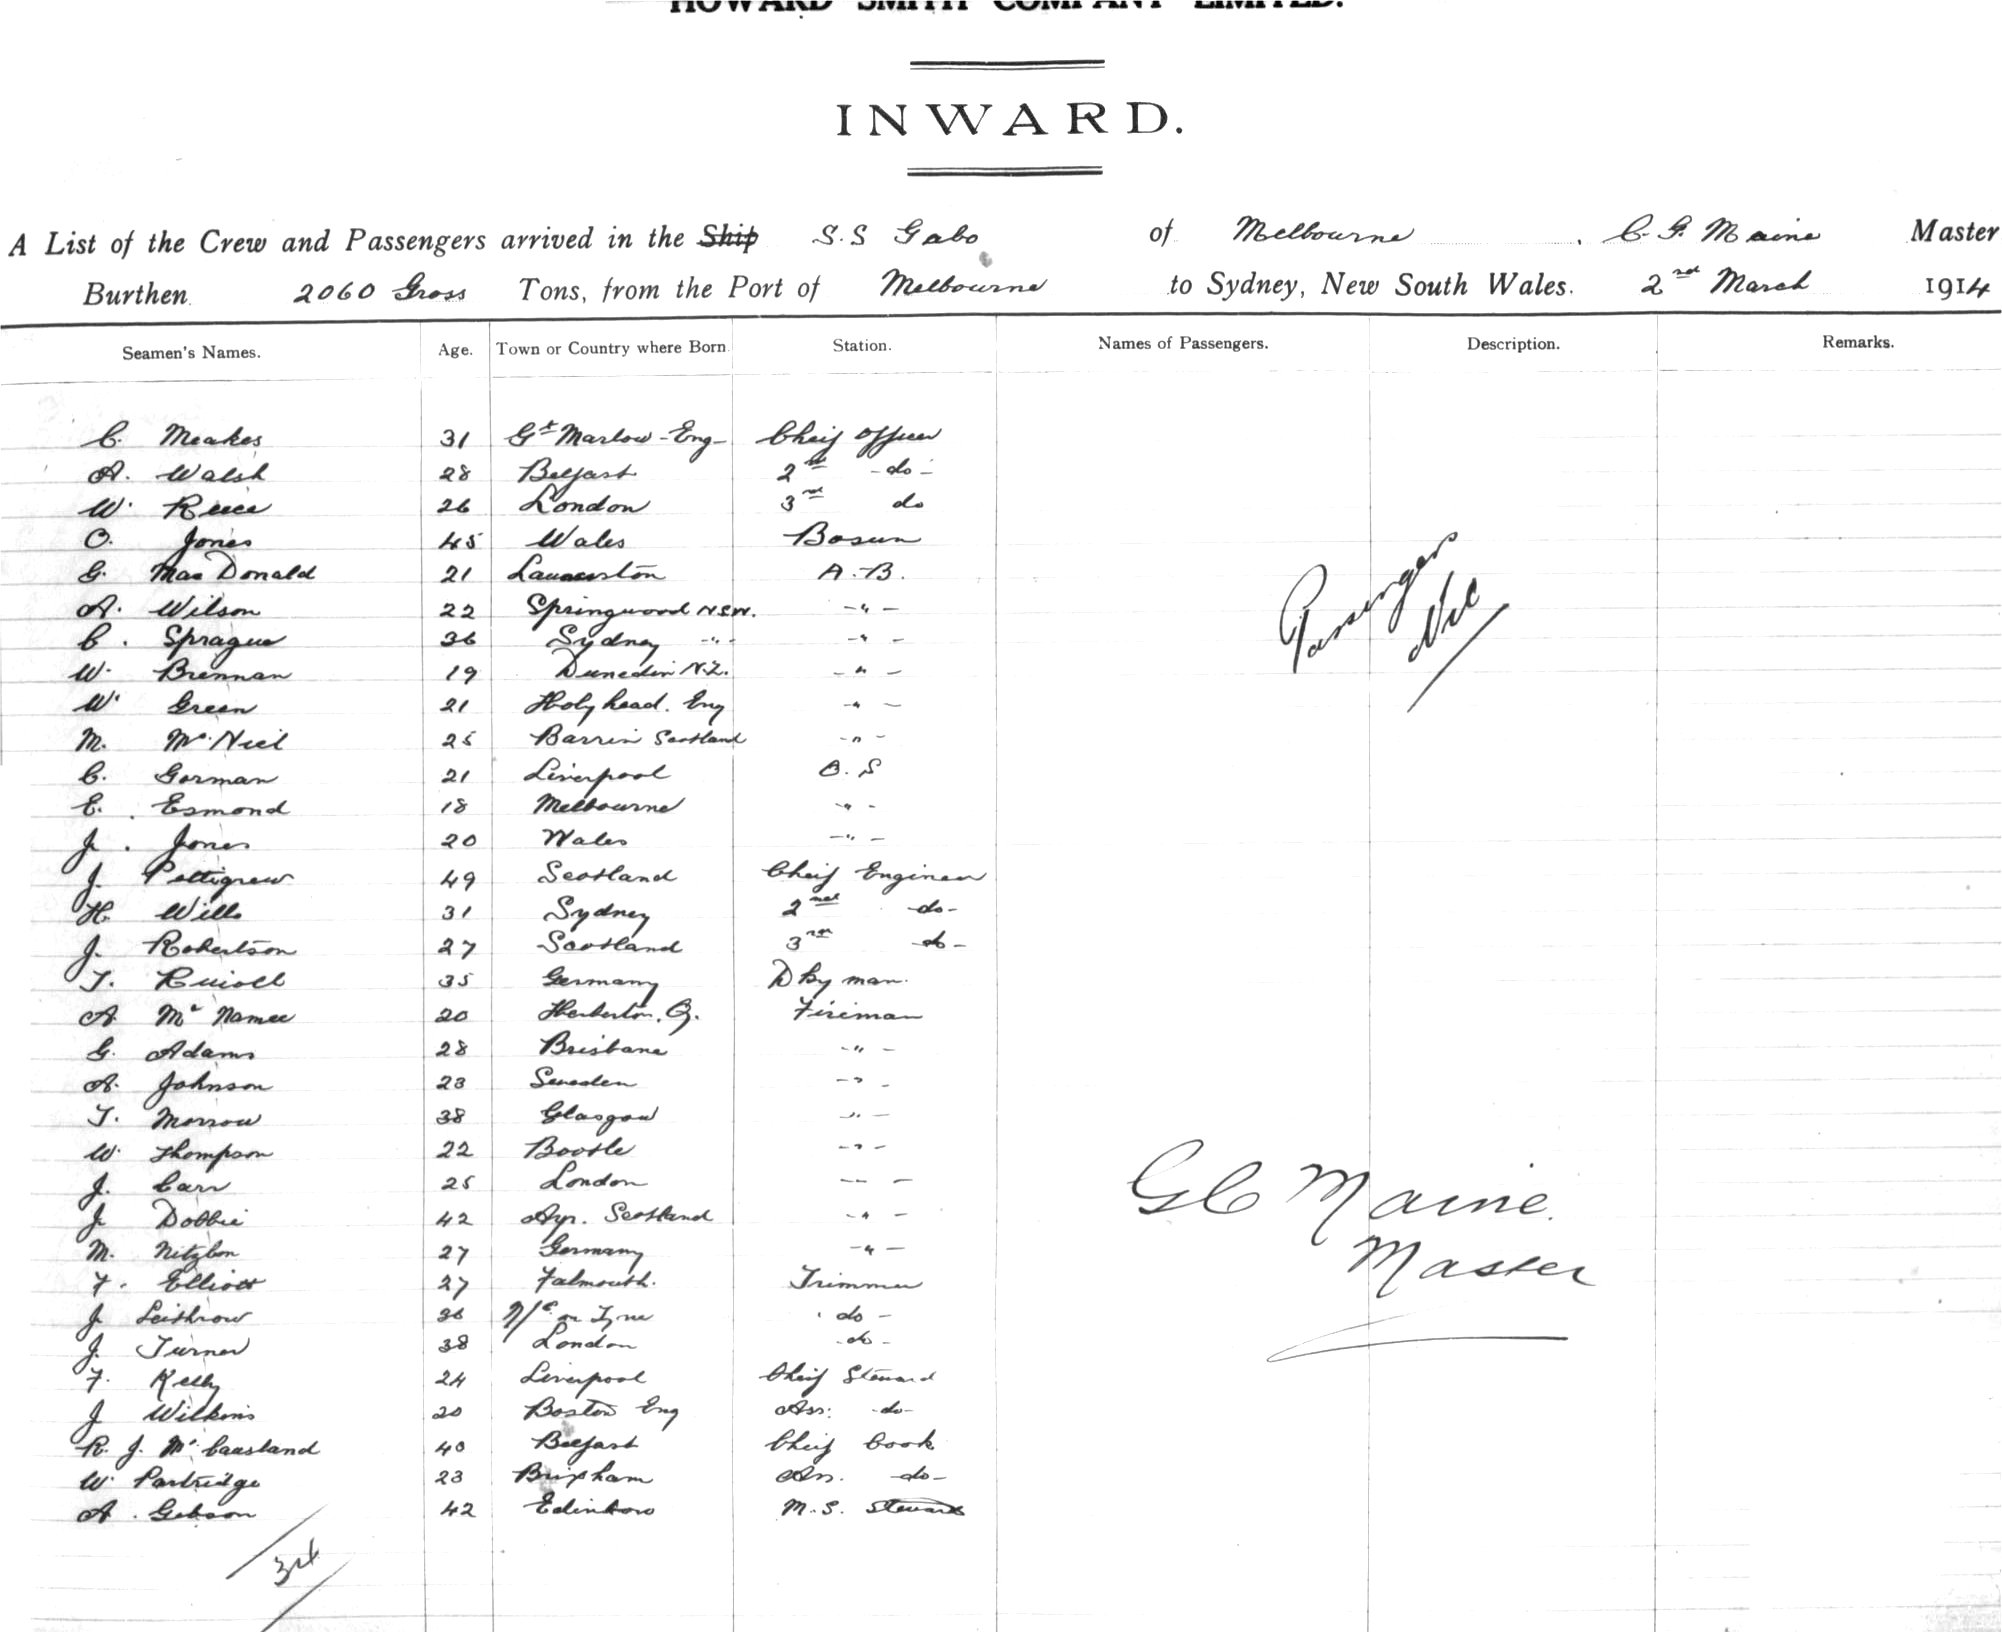 HOWARD SMITH COMPANY LIMITED.
INWARD.
A List of the Crew and Passengers arrived in the Ship S.S Gabo of Melbourne, C. G. Maine Master
Burthen 2060 Gross Tons, from the Port of Melbourne to Sydney, New South Wales. 2nd March 1914
Seamen's Names. Age. Town or Country where Born. Station. Names of Passengers. Description. Remarks.
C. Meakes 31 Gt Marlow - Eng - Cheif Officer
A. Walsh 28 Belfast 2nd - do -
W. Reece 26 London 3rd do
O. Jones 45 Wales Bosun
G. MacDonald 21 Launceston A.B.
A. Wilson 22 Springwood N.S.W. - " -
C. Sprague 36 Sydney - " - - " -
W. Brennan 19 Dunedin N.Z. - " -
W. Green 21 Holyhead. Eng - " -
M. McNiel 25 Barrin Scotland - " -
C. Gorman 21 Liverpool O.S
E. Esmond 18 Melbourne - " -
J. Jones 20 Wales - " -
J. Pettigrew 49 Scotland Cheif Engineer
H. Wills 31 Sydney 2nd - do -
J. Robertson 27 Scotland 3rd - do -
T. 35 Germany Dky man.
A McNamee 20 Herberton. Q. Fireman
G. Adams 28 Brisbane - " -
A. Johnson 23 Sweden - " -
T. Morrow 38 Glasgow - " -
W. Thompson 22 Bootle - " -
J. Carr 25 London - -
J Dobbie 42 Ayr. Scotland - " -
M. Nitzbon 27 Germany - " -
F. Elliott 27 Falmouth. Trimmer
J Leithrow 36 N/C on Tyne do -
J. Turner 38 London - do -
F. Kelly 24 Liverpool Cheif Steward
J Wilkins 20 Boston Eng Ass: - do -
R. J. McCausland 40 Belfast Cheif Cook
W Partridge 23 Brixham Ass. - do -
A. Gibson 42 M.S. Steward
Passengers
Nil
G C Maine.
Master
34